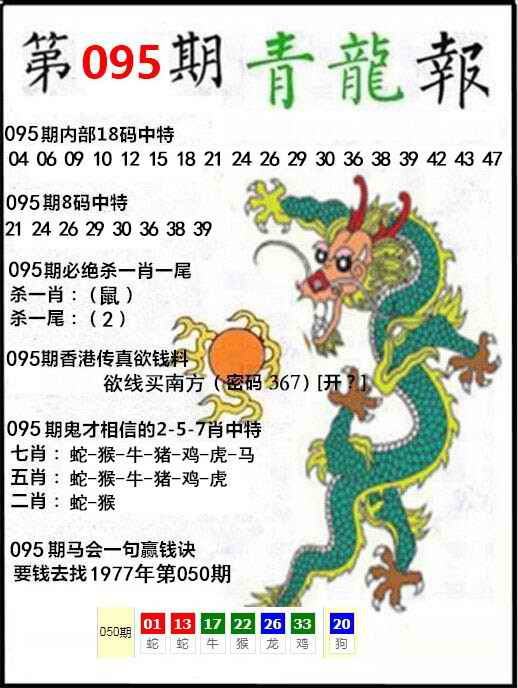 第095期青龍報
095期内部18码中特
04 06 09 10 12 15 18 21 24 26 29 30 36 38 39 42 43 47
095期8码中特
21 24 26 29 30 36 38 39
095期必绝杀一肖一尾
杀一肖：（鼠）
杀一尾：（2）
095期香港传真欲钱料
欲线买南方（密码 367）[开？]
095期鬼才相信的2-5-7肖中特
七肖：蛇-猴-牛-猪-鸡-虎-马
五肖：蛇-猴-牛-猪-鸡-虎
二肖：蛇-猴
095期马会一句赢钱诀
要钱去找1977年第050期
050期 01 13 17 22 26 33 20
蛇 蛇 牛 猴 龙 鸡 狗